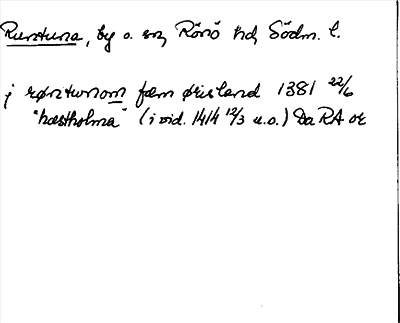 Runtuna, by o. sn, Rönö hd, Södm. l.
j røntunom fæm ørisland 1381 22/6
"hæstholma" (i vid. 1414 12/3 u.o.) Da RA or